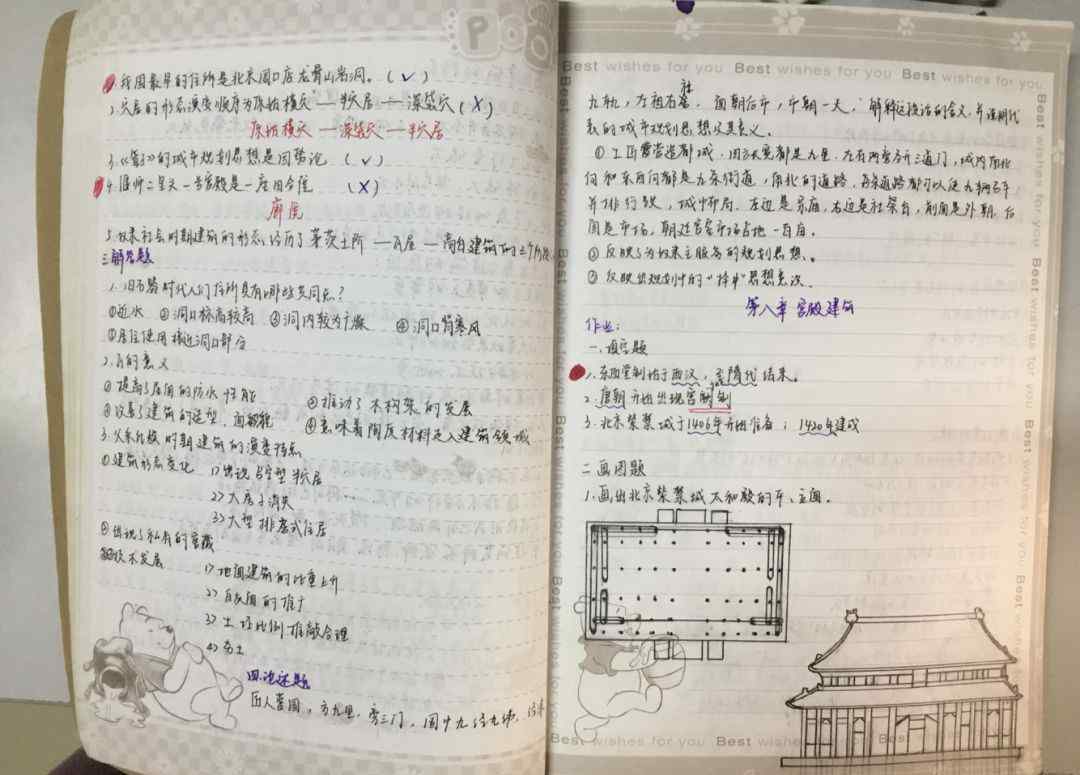 POO
1.我国最早的住所是北京周口店龙骨山岩洞。(√)
2.穴居的形态演变顺序为原始横穴—半穴居—深袋穴(X)
原始横穴—深袋穴—半穴居
3.《管子》的城市规划思想是因势论 (√)
4.偃师二里头一号宫殿是一座四合院 (X)
廊院
5.奴隶社会时期建筑的形态经历了茅茨土阶—瓦屋—高台建筑的三个阶段
三.解答题
1.旧石器时代人们住所具有哪些共同点?
①近水 ②洞口标高较高 ③洞内较为干燥 ④洞口背寒风
⑤居住使用接近洞口部分
2.瓦的意义
①提高了屋面的防水性能 ②推动了木构架的发展
③改善了建筑的造型、面貌 ④意味着陶质材料走入建筑领域
3.父系氏族时期建筑的演变特点
①建筑形态变化 1>出现吕字型半穴居
2>大房子消失
3>大型排套式住居
②出现了私有的窖藏
技术发展 1>地面建筑的比重上升
2>白灰面的推广
3>
4>夯土
四.论述题
匠人营国,方九里,旁三门,国中九经九纬,经涂
九轨,左祖右社,面朝后市,市朝一夫。解释这段话的含义,并说明代
表的城市规划思想及其意义。
①工匠营造都城,四方长宽都是九里,左右两旁各开三道门,城内南北
向和东西向都是九条街道,南北的道路,每条道路都可以使九辆马车
并排行驶,城中布局,左边是宗庙,右边是社稷台,前面是外朝,后
面是市场,朝廷宫室市场占地一百亩。
②反映了为奴隶主服务的规划思想。
③反映出规划中的“择中”思想意识
第八章 宫殿建筑
作业:
一.填空题
1.东西堂制始于西汉,至隋代结束。
2.唐朝开始出现宫阙制
3.北京紫禁城于1406年开始准备;1420年建成
二.画图题
1.画出北京紫禁城太和殿的平、立面。
Best wishes for you Best wishes for you Best wishes for you
Best wishes for you Best wishes for you Best wishes for you
Best wishes for you Best wishes for you Best wishes for you
Best wishes for you Best wishes for you